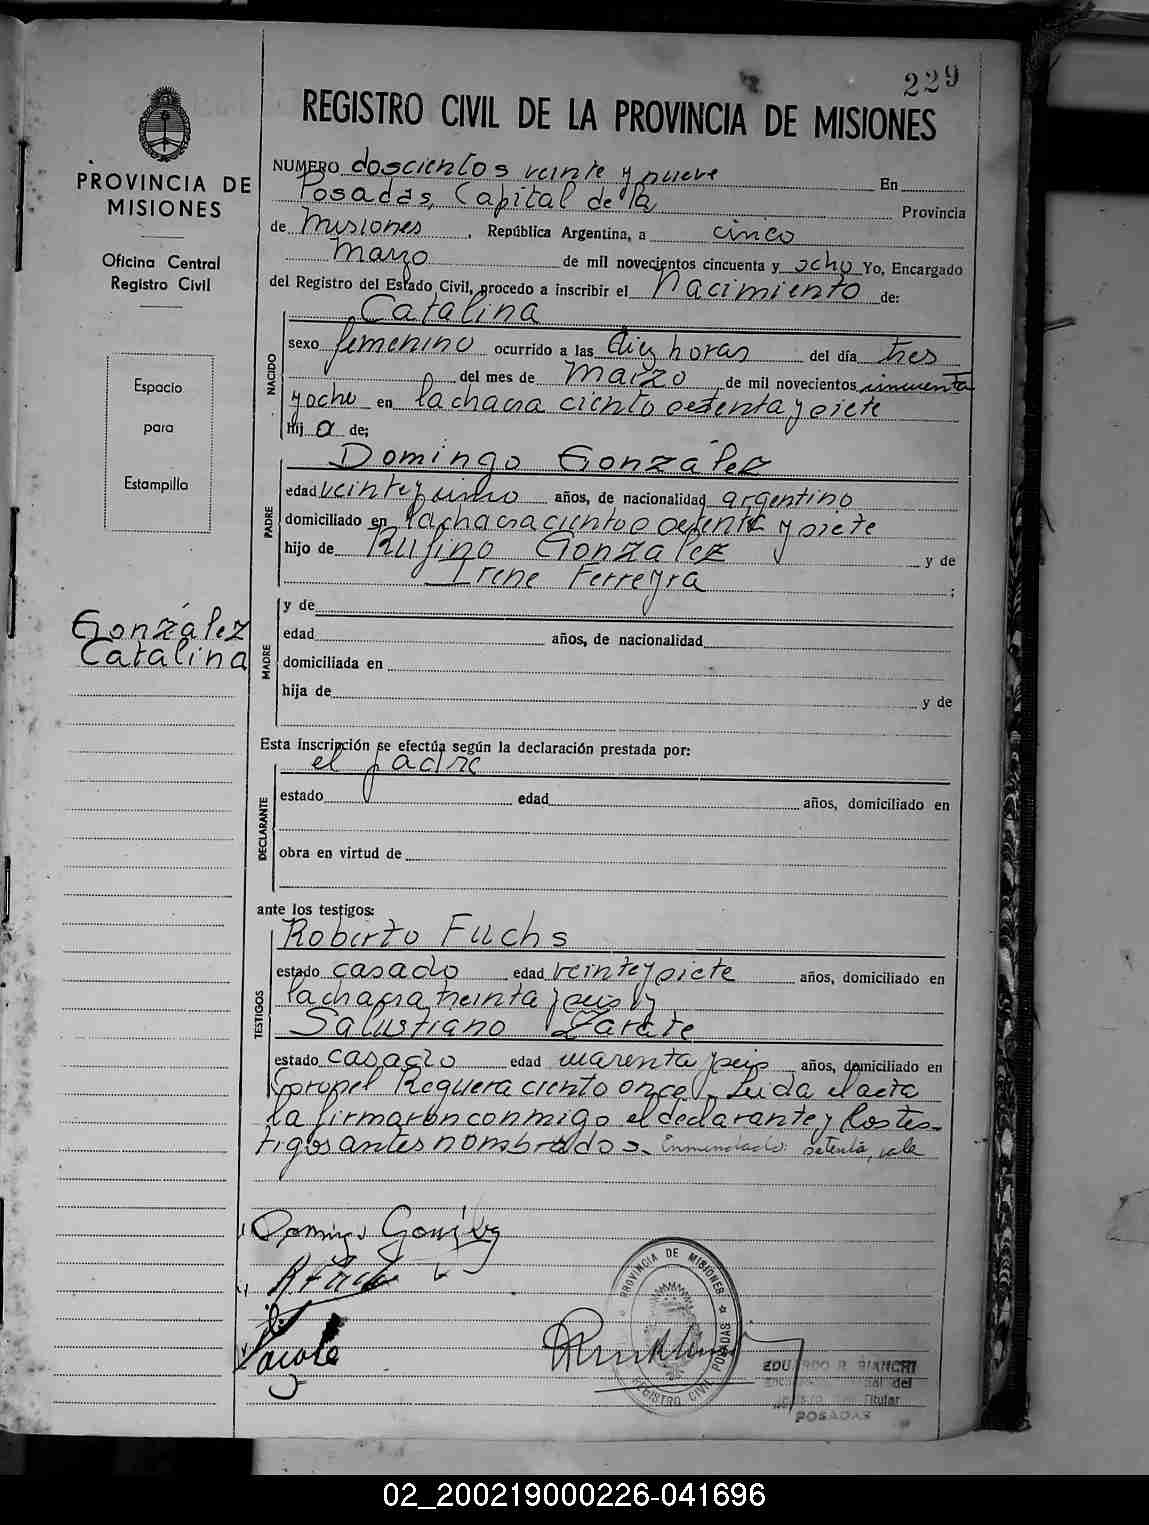 229
REGISTRO CIVIL DE LA PROVINCIA DE MISIONES
PROVINCIA DE
MISIONES
Oficina Central
Registro Civil
Espacio
para
Estampilla
González
Catalina
NUMERO doscientos veinte y nueve En
Posadas, Capital de la Provincia
de Misiones, República Argentina, a cinco
Marzo de mil novecientos cincuenta y ocho Yo, Encargado
del Registro del Estado Civil, procedo a inscribir el Nacimiento de:
NACIDO
Catalina
sexo femenino ocurrido a las diez horas del día tres
del mes de Marzo de mil novecientos cincuenta
y ocho en la chacra ciento setenta y siete
hij a de;
PADRE
Domingo González
edad veinte y cinco años, de nacionalidad argentino
domiciliado en la chacra ciento setenta y siete
hijo de Rufino González y de
Irene Ferreyra ;
MADRE
y de
edad años, de nacionalidad
domiciliada en
hija de y de
Esta inscripción se efectúa según la declaración prestada por:
DECLARANTE
el padre
estado edad años, domiciliado en
obra en virtud de
ante los testigos:
TESTIGOS
Roberto Fuchs
estado casado edad veinte y siete años, domiciliado en
la chacra treinta y seis y
Salustiano Zarate
estado casado edad cuarenta y seis años, domiciliado en
Coronel Reguera ciento once. Leida el acta
la firmaron conmigo el declarante y los tes-
tigos antes nombrados.- Enmendado: setenta, vale
Domingo González
R. Fuchs
Zarate
PROVINCIA DE MISIONES
REGISTRO CIVIL POSADAS
EDUARDO R. BIANCHI
del
Titular
POSADAS
02_200219000226-041696